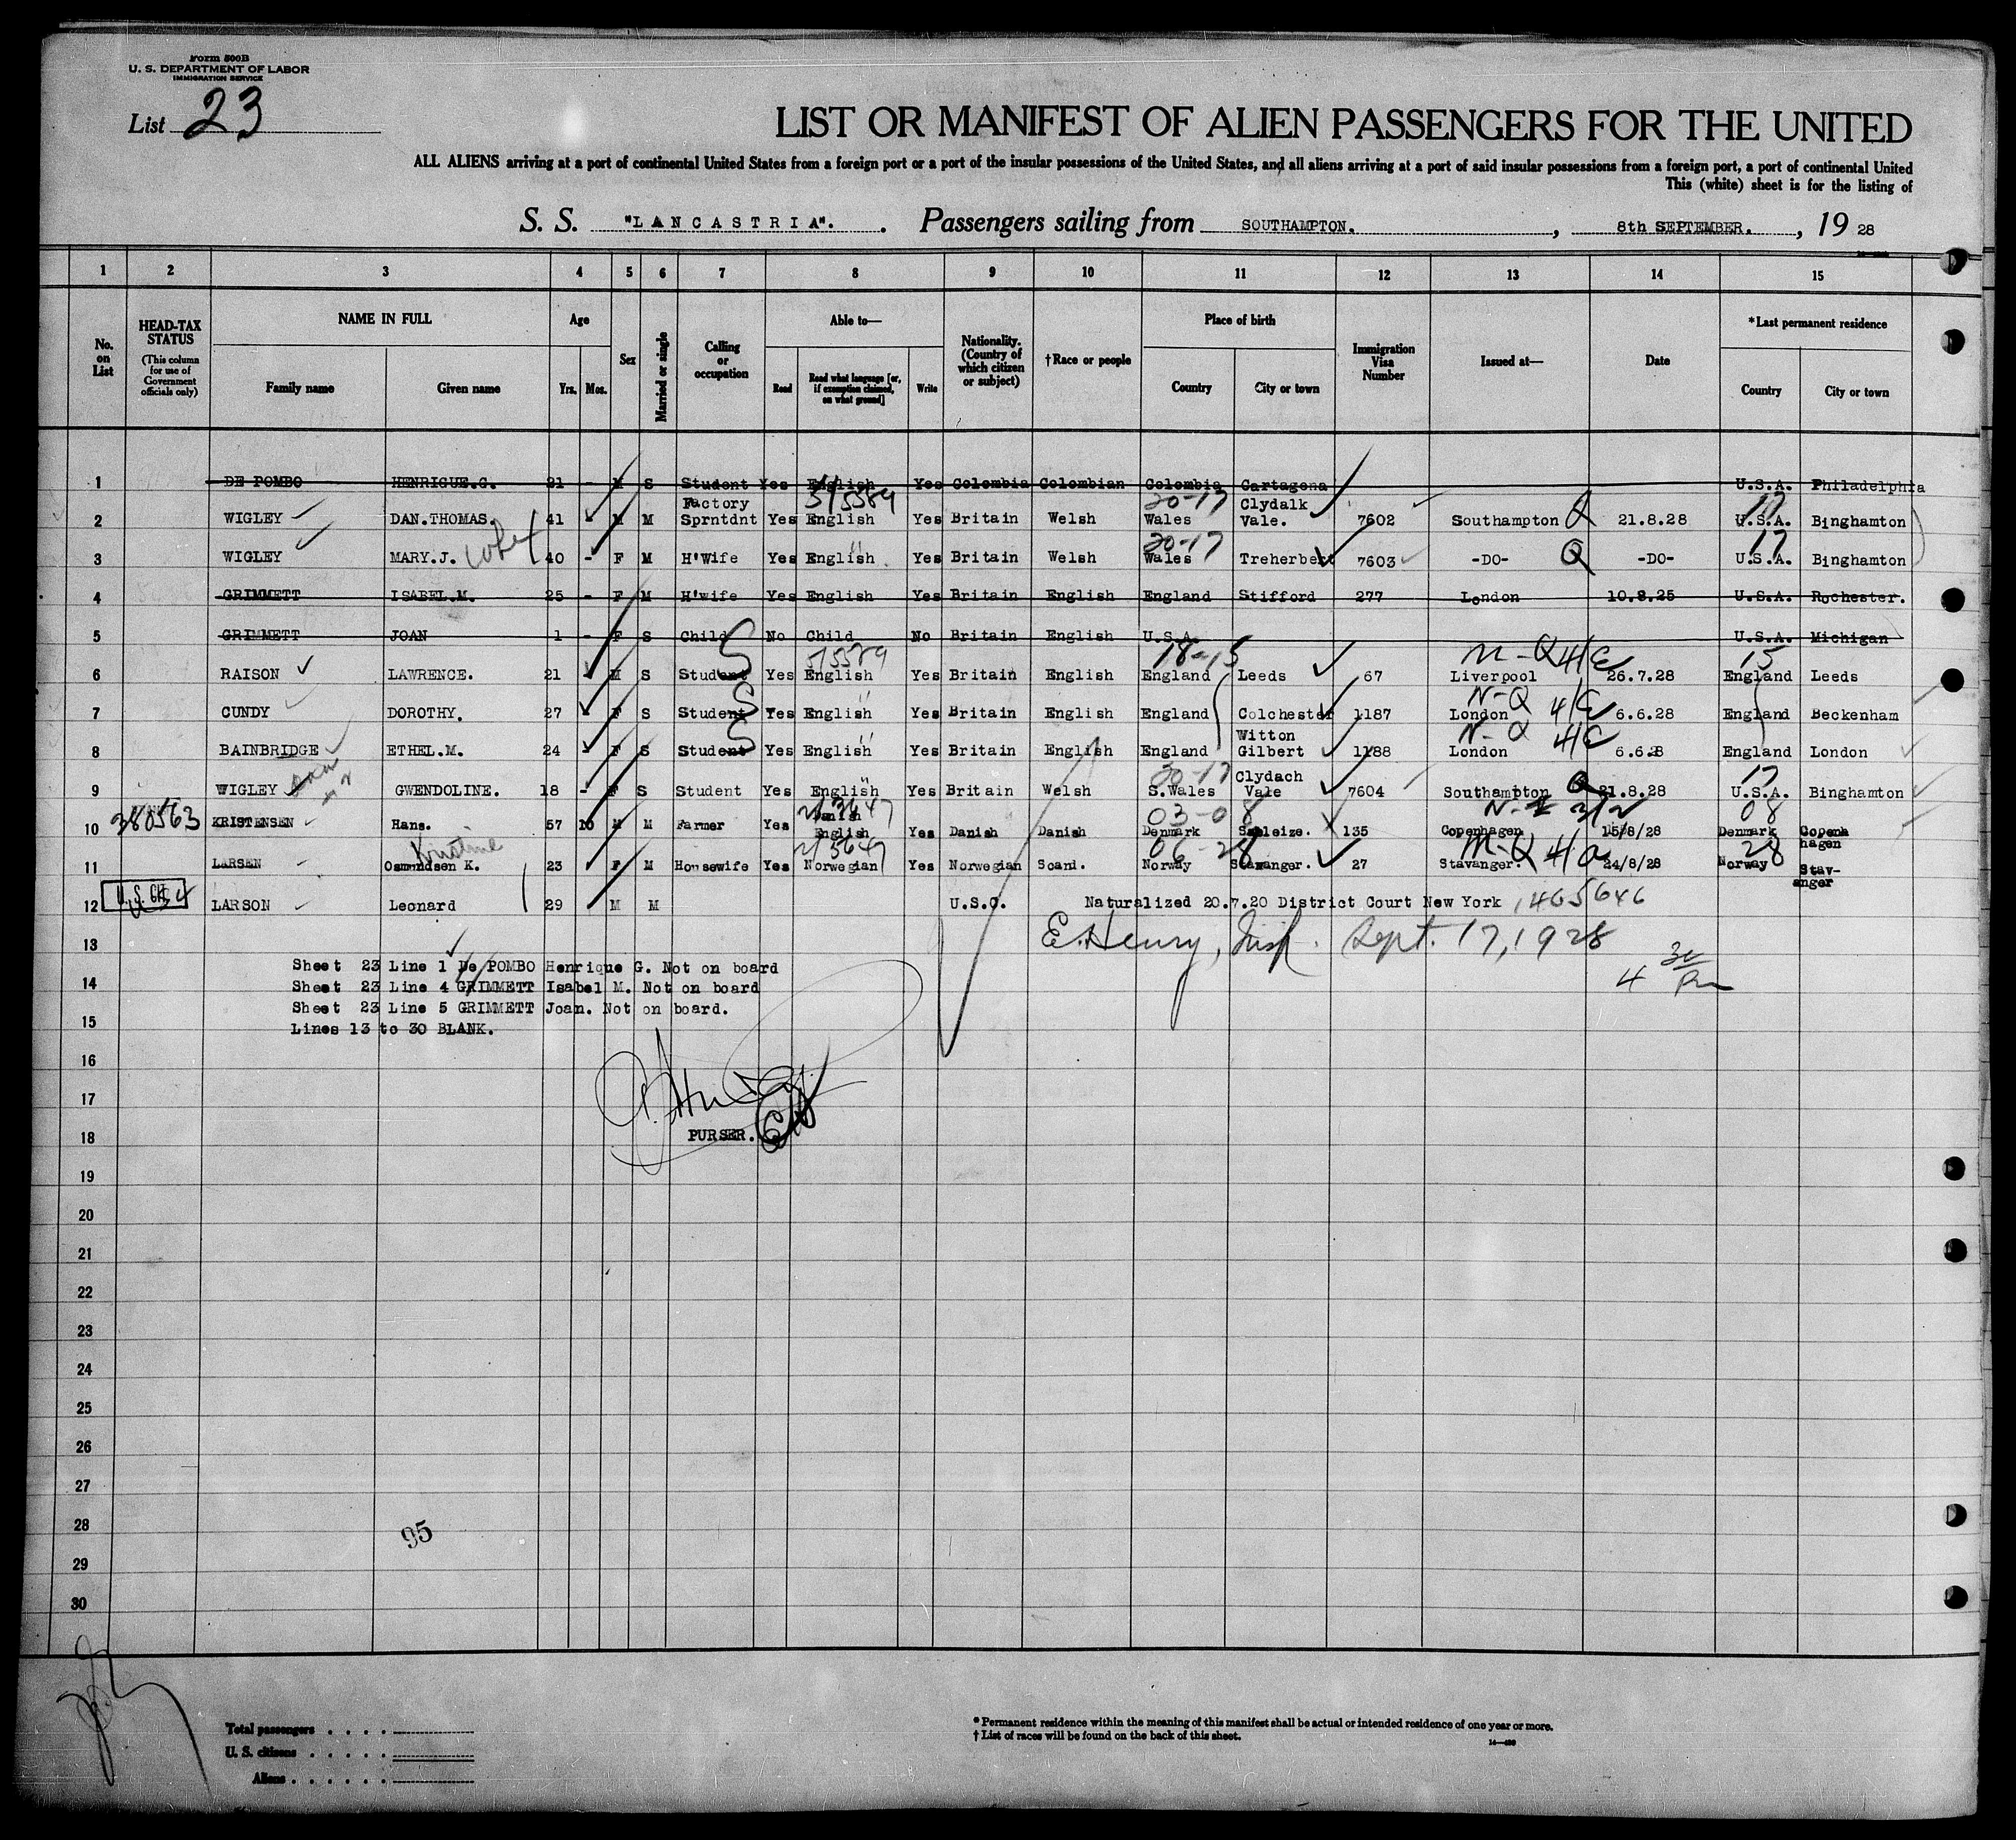 Form 500B
U. S. DEPARTMENT OF LABOR
IMMIGRATION SERVICE
List 23
LIST OR MANIFEST OF ALIEN PASSENGERS FOR THE UNITED
ALL ALIENS arriving at a port of continental United States from a foreign port or a port of the insular possessions of the United States, and all aliens arriving at a port of said insular possessions from a foreign port, a port of continental United
This (white) sheet is for the listing of
S. S. "LANCASTRIA". Passengers sailing from SOUTHAMPTON. , 8th SEPTEMBER. , 19 28
1 2 3 4 5 6 7 8 9 10 11 12 13 14 15
No. on List
HEAD-TAX STATUS
(This column for use of Government officials only)
NAME IN FULL
Family name
Given name
Age
Yrs.
Mos.
Sex
Married or single
Calling or occupation
Able to—
Read
Read what language [or, if exemption claimed, on what ground]
Write
Nationality. (Country of which citizen or subject)
†Race or people
Place of birth
Country
City or town
Immigration Visa Number
Issued at—
Date
*Last permanent residence
Country
City or town
1 DE POMBO HENRIGUE.G. 21 - M S Student Yes English Yes Colombia Colombian Colombia Cartagena U.S.A. Philadelphia
2 WIGLEY DAN.THOMAS. 41 - M M Factory Sprntdnt Yes English 515589 Yes Britain Welsh 20-17 Wales Clydalk Vale. 7602 Southampton Q 21.8.28 17 U.S.A. Binghamton
3 WIGLEY MARY.J. 40 - F M H'Wife Yes English Yes Britain Welsh 20-17 Wales Treherbert 7603 -DO- Q -DO- 17 U.S.A. Binghamton
4 GRIMMETT ISABEL.M. 25 - F M H'wife Yes English Yes Britain English England Stifford 277 London 10.8.25 U.S.A. Rochester.
5 GRIMMETT JOAN 1 - F S Child No Child No Britain English U.S.A. U.S.A. Michigan
6 RAISON LAWRENCE. 21 - M S Student S Yes 515589 English Yes Britain English 18-15 England Leeds 67 Liverpool 26.7.28 15 England Leeds
7 CUNDY DOROTHY. 27 - F S Student S Yes English Yes Britain English England Colchester 1187 N-Q London 6.6.28 England Beckenham
8 BAINBRIDGE ETHEL.M. 24 - F S Student S Yes English Yes Britain English England Witton Gilbert 1188 N-Q London 6.6.28 England London
9 WIGLEY GWENDOLINE. 18 - F S Student Yes English Yes Britain Welsh 20-17 S.Wales Clydach Vale 7604 Southampton Q 21.8.28 17 U.S.A. Binghamton
10 380563 KRISTENSEN Hans. 57 10 M M Farmer Yes Danish English Yes Danish Danish 03-08 Denmark 135 Copenhagen 15/8/28 08 Denmark Copenhagen
11 LARSEN Kristine Osmundsen K. 23 F M Housewife Yes Norwegian Yes Norwegian Scand. 06-28 Norway Stavanger. 27 Stavanger. 24/8/28 28 Norway Stavanger
12 U.S. CIT. LARSON Leonard 29 M M U.S.C. Naturalized 20.7.20 District Court New York 1465646
E. Henry, Insp. Sept. 17, 1928
4 30 Pm
13
Sheet 23 Line 1 De POMBO Henrique G. Not on board
14
Sheet 23 Line 4 GRIMMETT Isabel M. Not on board
Sheet 23 Line 5 GRIMMETT Joan. Not on board.
15
Lines 13 to 30 BLANK.
16
17
PURSER.
18
19
20
21
22
23
24
25
26
27
28
95
29
30
Total passengers
U. S. citizens
Aliens
* Permanent residence within the meaning of this manifest shall be actual or intended residence of one year or more.
† List of races will be found on the back of this sheet.